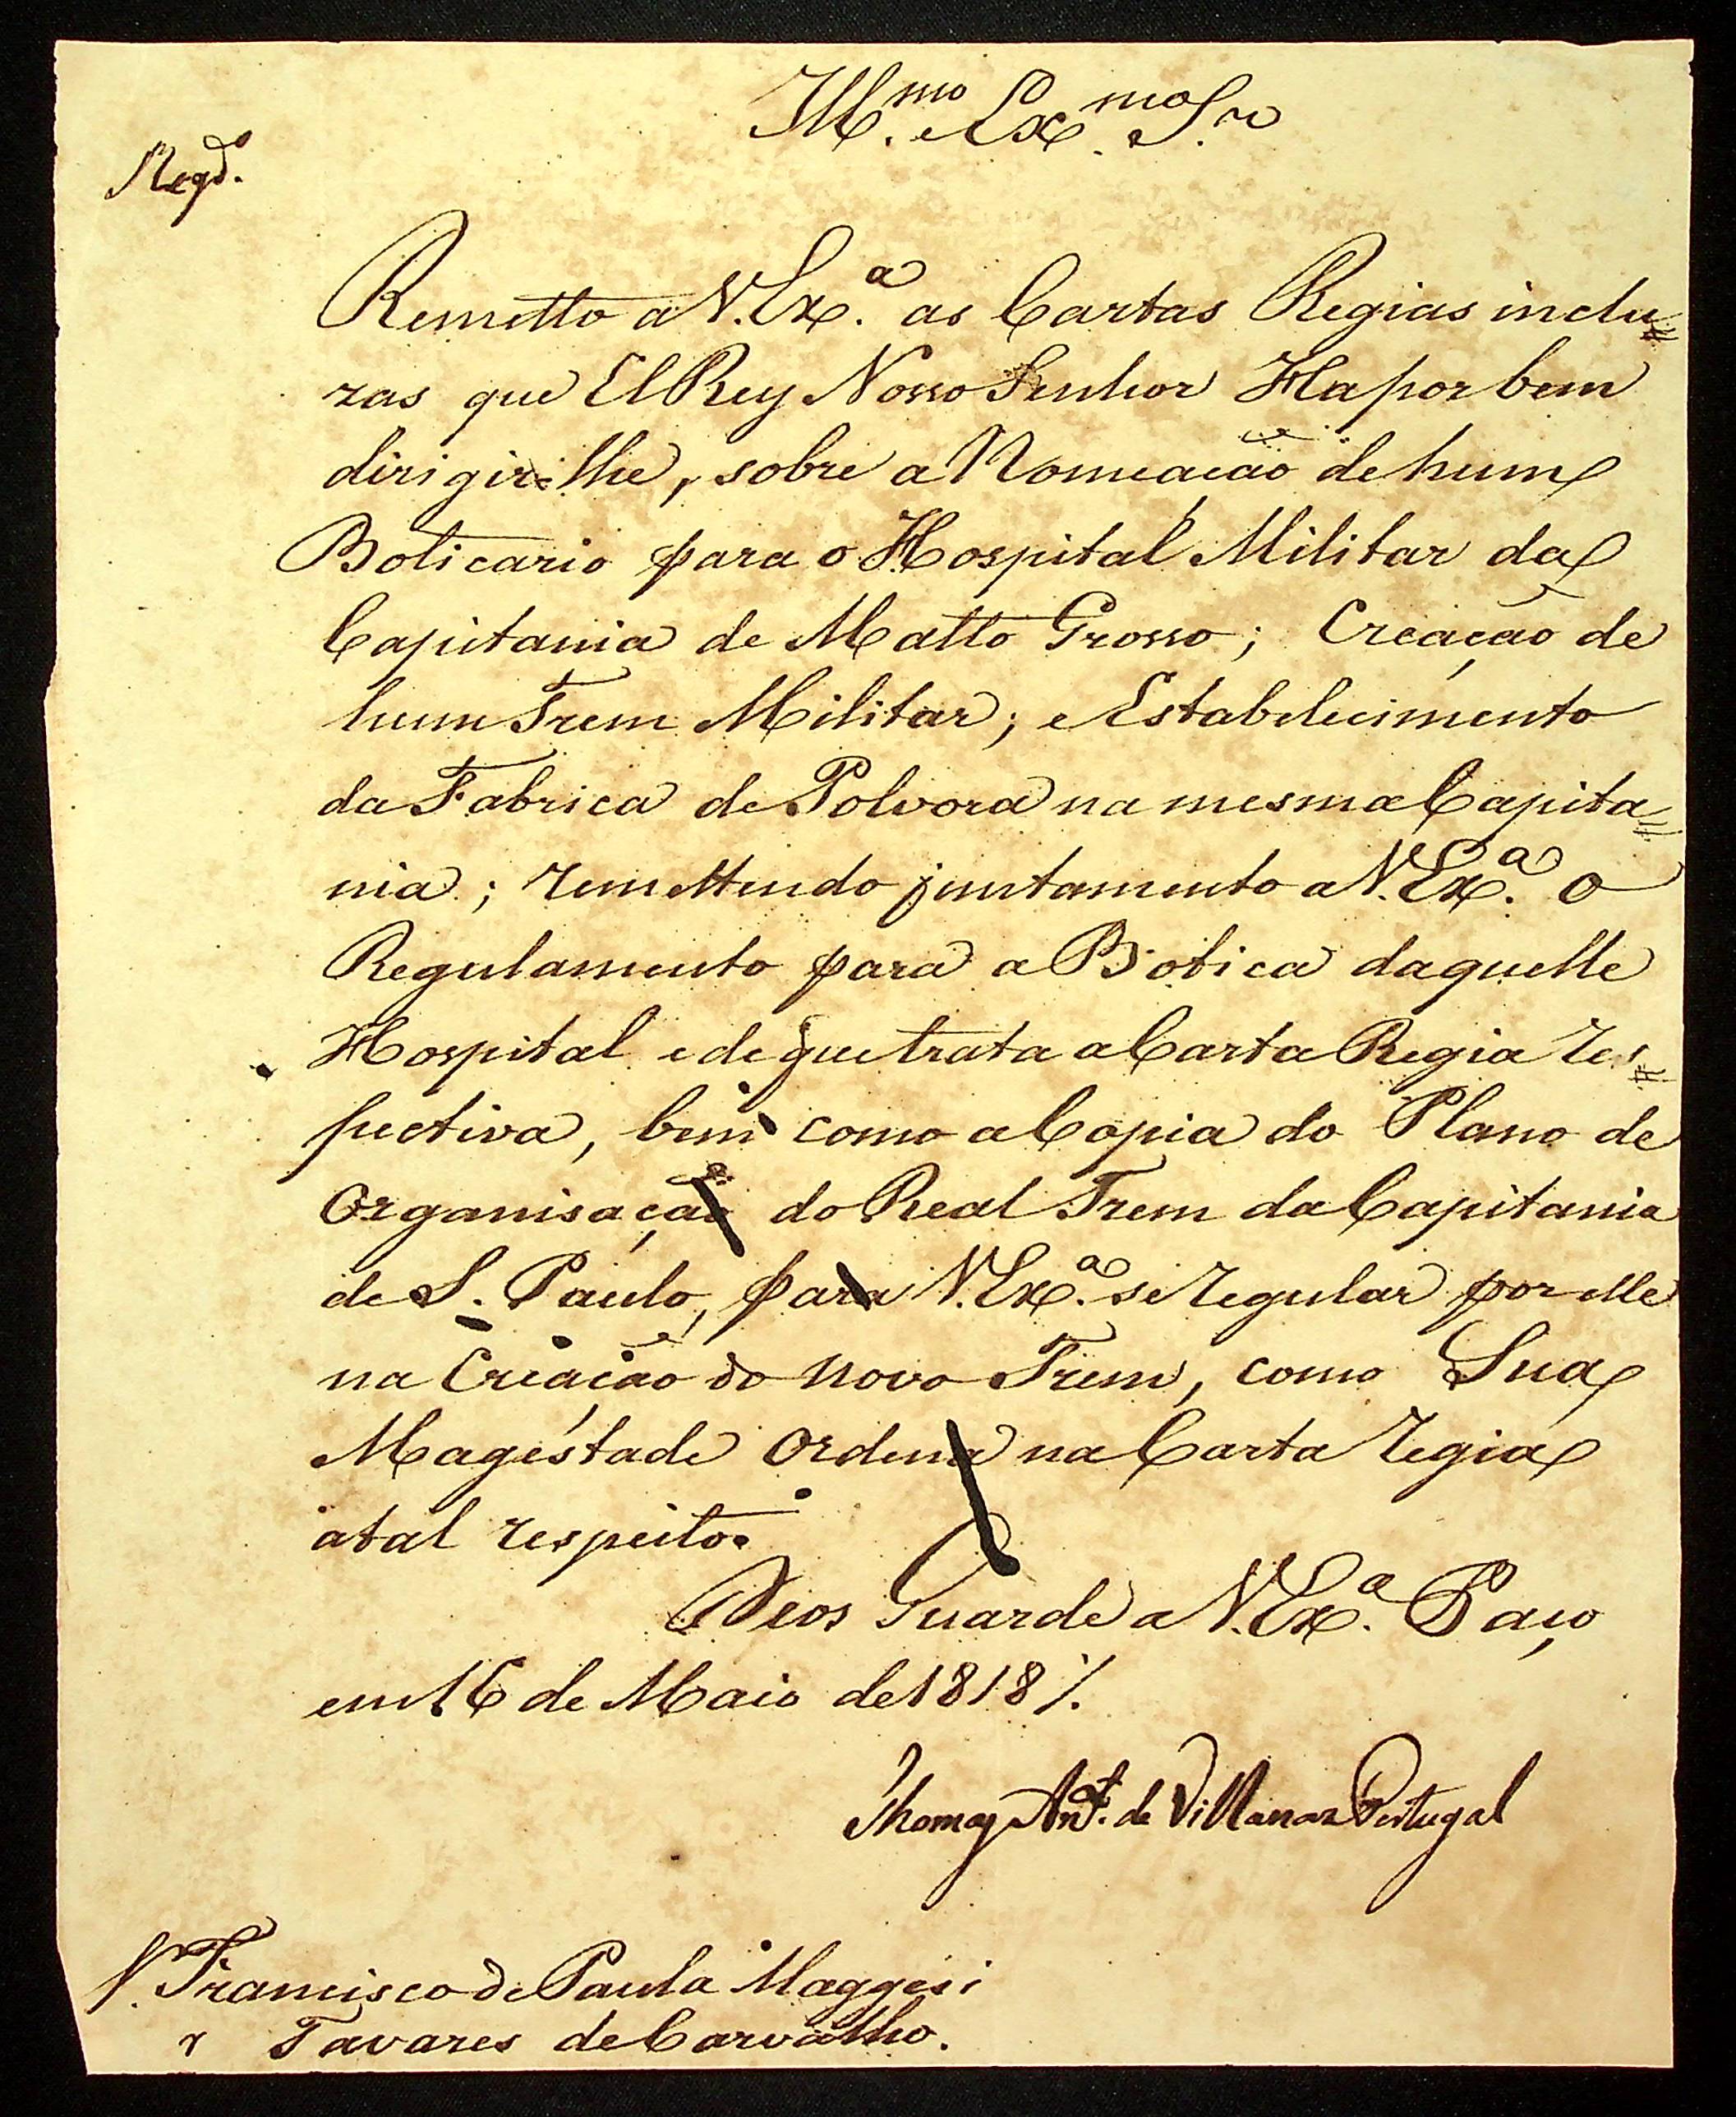 Ill.mo e Ex.mo Sr.
Regd.o
Remetto a V. Ex.a as Cartas Regias inclu=
zas que ElRey Nosso Senhor Ha por bem
dirigir-lhe, sobre a Nomeação de hum
Boticario para o Hospital Militar da
Capitania de Matto Grosso; Creação de
hum Trem Militar; e Estabelecimento
da Fabrica de Polvora na mesma Capita=
nia; remettendo juntamento a V. Ex.a o
Regulamento para a Botica daquelle
Hospital e de que trata a Carta Regia res=
pectiva, bem como a Copia do Plano de
Organisação do Real Trem da Capitania
de S. Paulo, para V. Ex.a se regular por elle
na Creação do novo Trem, como Sua
Magestade Ordena na Carta regia
a tal respeito.
Deos Guarde a V. Ex.a Paço
em 16 de Maio de 1818 /.
Thomaz Ant.o de Villanova Portugal
S.r Francisco de Paula Maggesi
Tavares de Carvalho.